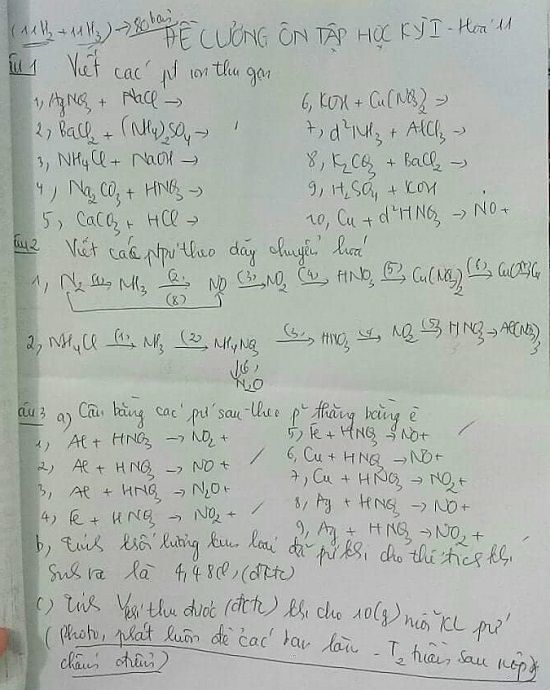 (11H2 + 11H3) → 80 bài
ĐỀ CƯỜNG ÔN TẬP HỌC KỲ I - Hoá 11
Câu 1 Viết các pt ion thu gọn
1, AgNO3 + NaCl → 6, KOH + Cu(NO3)2 →
2, BaCl2 + (NH4)2SO4 → 7, d² NH3 + AlCl3 →
3, NH4Cl + NaOH → 8, K2CO3 + BaCl2 →
4, Na2CO3 + HNO3 → 9, H2SO4 + KOH
5, CaCO3 + HCl → 10, Cu + d² HNO3 → NO +
Câu 2 Viết các ptpư theo dãy chuyển hoá
1, N2 (1)→ NH3 (2)→ NO (3)→ NO2 (4)→ HNO3 (5)→ Cu(NO3)2 (6)→ CuO → Cu
(8)
2, NH4Cl (1)→ NH3 (2)→ NH4NO3 (3)→ HNO3 (4)→ NO2 (5)→ HNO3 → Al(NO3)3
↓(6)
N2O
Câu 3 a) Cân bằng các pư sau theo p² thăng bằng e
1, Al + HNO3 → NO2 + 5, Fe + HNO3 → NO +
2, Al + HNO3 → NO + 6, Cu + HNO3 → NO +
3, Al + HNO3 → N2O + 7, Cu + HNO3 → NO2 +
4, Fe + HNO3 → NO2 + 8, Ag + HNO3 → NO +
9, Ag + HNO3 → NO2 +
b, Tính khối lượng kim loại đã pư khi cho thể tích khí
sinh ra là 4,48 l, (đktc)
c) Tính V khí thu được (đktc) khi cho 10(g) mỗi KL pư
(photo, phát luôn đề các bạn làm - T2 tuần sau nộp
chấm điểm)